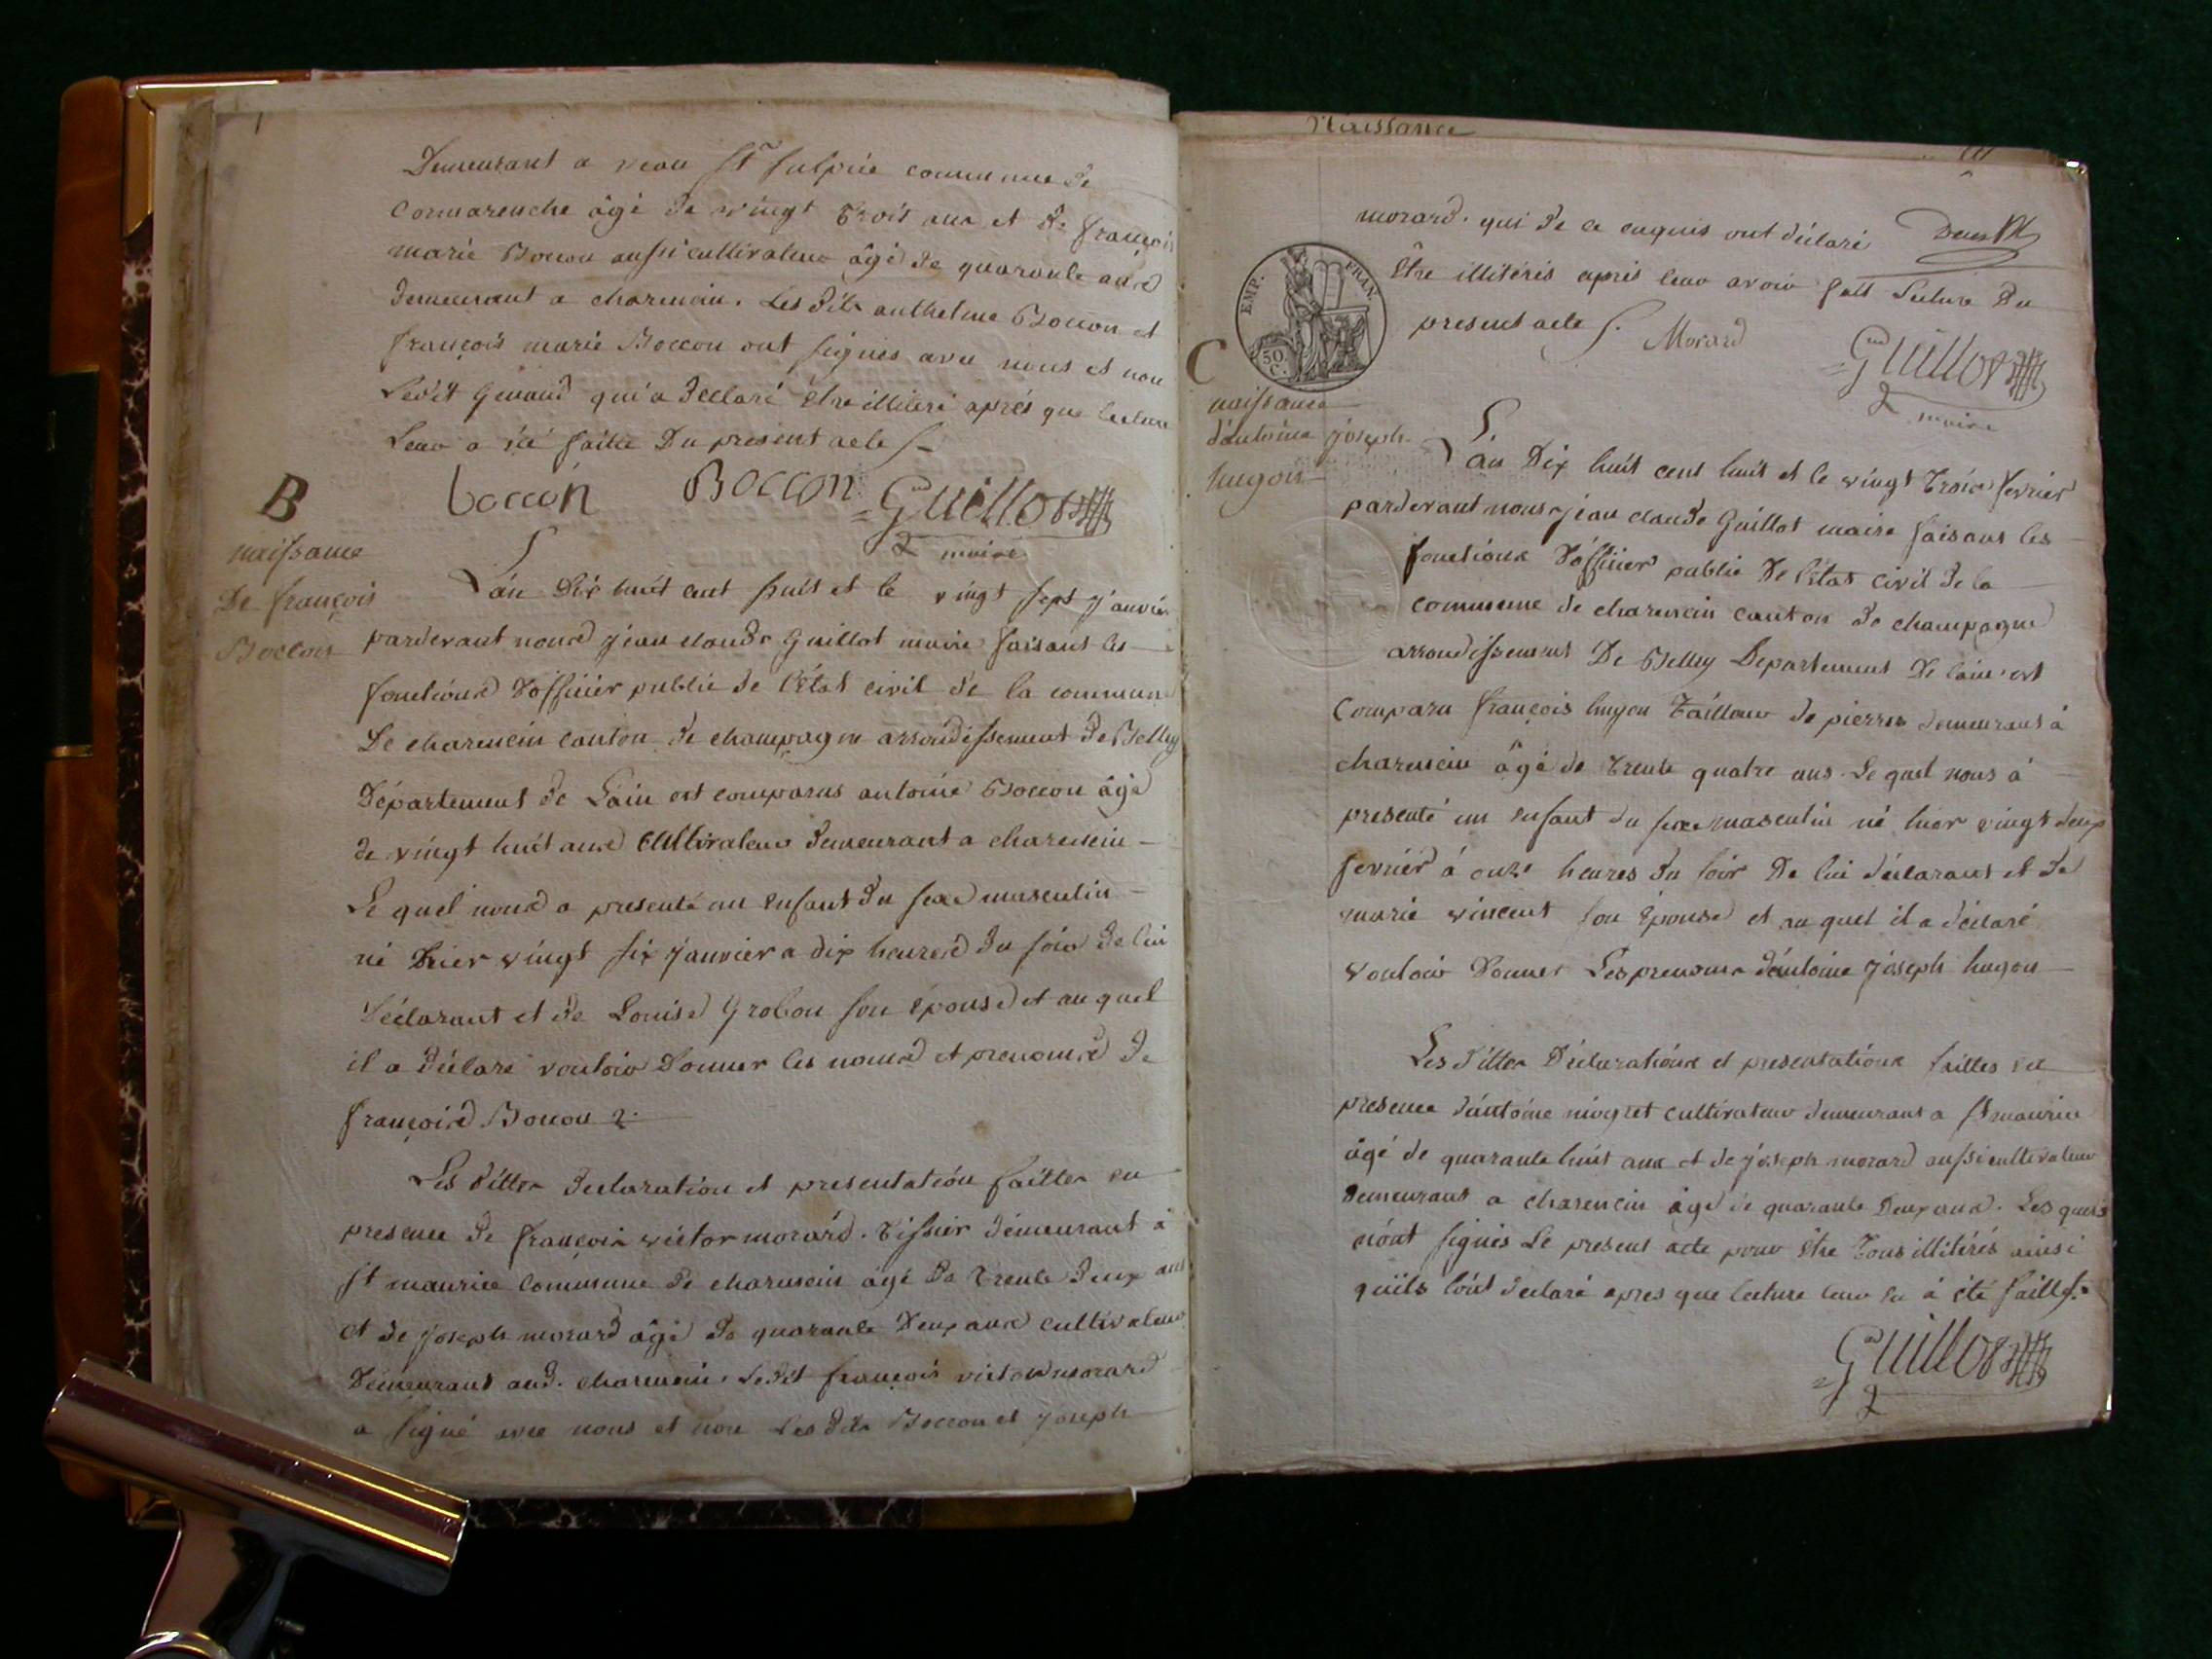 Demeurant a veau St Sulpice commune de
Cormarenche âgé de vingt trois ans et de françois
marie Boccon aussi cultivateur âgé de quarante ans
demeurant a charencin. Les dits anthelme Boccon et
françois marie Boccon ont signés avec nous et non
Ledit Genaud qui a declaré être illiteré après que lecture
Leur a été faite Du present acte
boccon Boccon Guillot
maire
B
naissance
De françois
Boccon
L'an Dix huit cent huit et le vingt sept janvier
pardevant nous jean claude Guillot maire faisant les
fonctions d'officier public de l'état civil de la commune
De charencin canton de champagne arrondissement de Belley
Département de Lain est comparus antoine Boccon âgé
de vingt huit ans Cultivateur demeurant a charencin
Le quel nous a presenté un enfant du sexe masculin
né hier vingt six janvier a dix heures du soir de lui
déclarant et de Louise Grobon son épouse et au quel
il a déclaré vouloir Donner les noms et prenoms de
françois Boccon
Les dittes declaration et presentation faittes en
presence de françois victor morard. tissier demeurant à
St maurice commune de charencin âgé de trente deux ans
et de joseph morard âgé de quarante deux ans cultivateur
Demeurant aud. charencin. Ledit françois victor morard
a signé avec nous et non Les dits Boccon et joseph
Naissance
morard. qui de ce enquis ont déclaré
être illitérés après leur avoir fait Lecture Du
present acte Morard
Guillot
maire
EMP. FRAN.
50 C.
C
naissance
d'antoine joseph
hugon
L'an Dix huit cent huit et le vingt trois fevrier
pardevant nous jean claude Guillot maire faisant les
fonctions d'officier public de l'état civil de la
commune de charencin canton de champagne
arrondissement De Belley Departement De lain est
Comparu françois hugon tailleur de pierres demeurant à
charencin âgé de trente quatre ans. Le quel nous à
presenté un enfant du sexe masculin né hier vingt deux
fevrier à onze heures du soir De lui déclarant et de
marie vincent son épouse et au quel il a déclaré
vouloir Donner Les prenoms d'antoine joseph hugon
Les dittes Déclarations et presentations faittes en
presence d'antoine niogret cultivateur demeurant a St maurice
âgé de quarante huit ans et de joseph morard aussi cultivateur
demeurant a charencin âgé de quarante deux ans. Les quels
n'ont signés Le present acte pour être tous illitérés ainsi
qu'ils l'ont declaré apres que lecture leur en à été faitte
Guillot